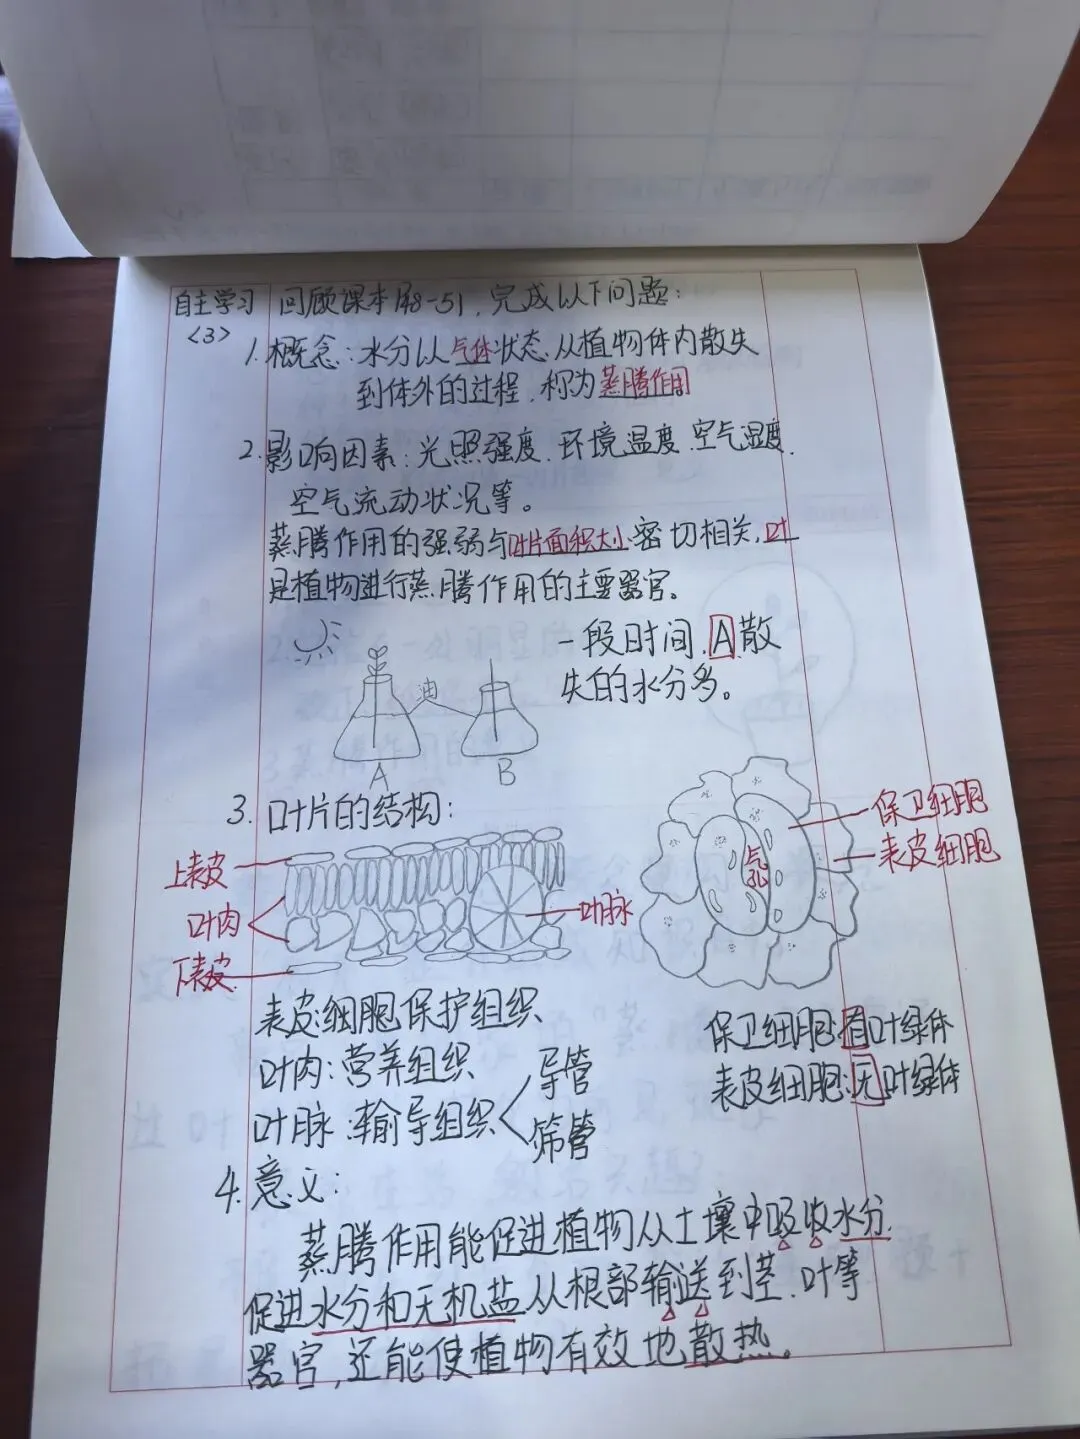 自主学习
<3>
回顾课本P48-51,完成以下问题:
1.概念:水分以气体状态从植物体内散失
到体外的过程,称为蒸腾作用
2.影响因素:光照强度、环境温度、空气湿度、
空气流动状况等。
蒸腾作用的强弱与叶片面积大小密切相关,叶
是植物进行蒸腾作用的主要器官。
一段时间,A散
失的水分多。
油
A
B
3.叶片的结构:
上表皮
叶肉
下表皮
叶脉
保卫细胞
表皮细胞
气孔
表皮细胞保护组织
叶肉:营养组织
叶脉:输导组织
导管
筛管
保卫细胞:有叶绿体
表皮细胞:无叶绿体
4.意义:
蒸腾作用能促进植物从土壤中吸收水分,
促进水分和无机盐从根部输送到茎、叶等
器官,还能使植物有效地散热。